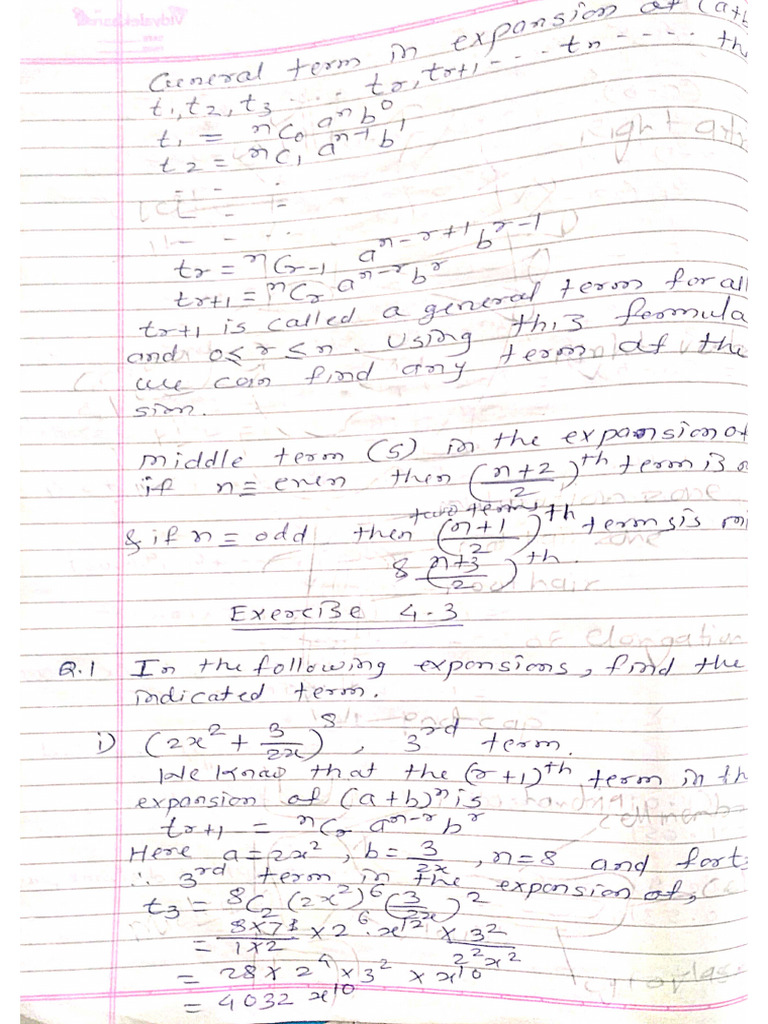 General term in expansion of (a+b
t1, t2, t3 ... tr, tr+1 - - - tn - - - - . th
t1 = nC0 a^n b^0
t2 = nC1 a^n-1 b^1
tr = nCr-1 a^n-r+1 b^r-1
tr+1 = nCr a^n-r b^r
tr+1 is called a general term for all
and 0≤r≤n. Using this formula
we can find any term of the
sion.
middle term (s) in the expansion of
if n = even then (n+2/2)^th term is
two terms
& if n = odd then (n+1/2)^th terms is mi
& (n+3/2)^th.
Exercise 4.3
Q.1 In the following expansions, find the
indicated term.
i) (2x^2 + 3/2x)^8, 3^rd term.
We know that the (r+1)^th term in th
expansion of (a+b)^n is
tr+1 = nCr a^n-r b^r
Here a=2x^2, b=3/2x, n=8 and for t
∴ 3^rd term in the expansion of,
t3 = 8C2 (2x^2)^6 (3/2x)^2
= 8×7/1×2 × 2^6 · x^12 × 3^2/2^2x^2
= 28 × 2^4 × 3^2 × x^10
= 4032 x^10